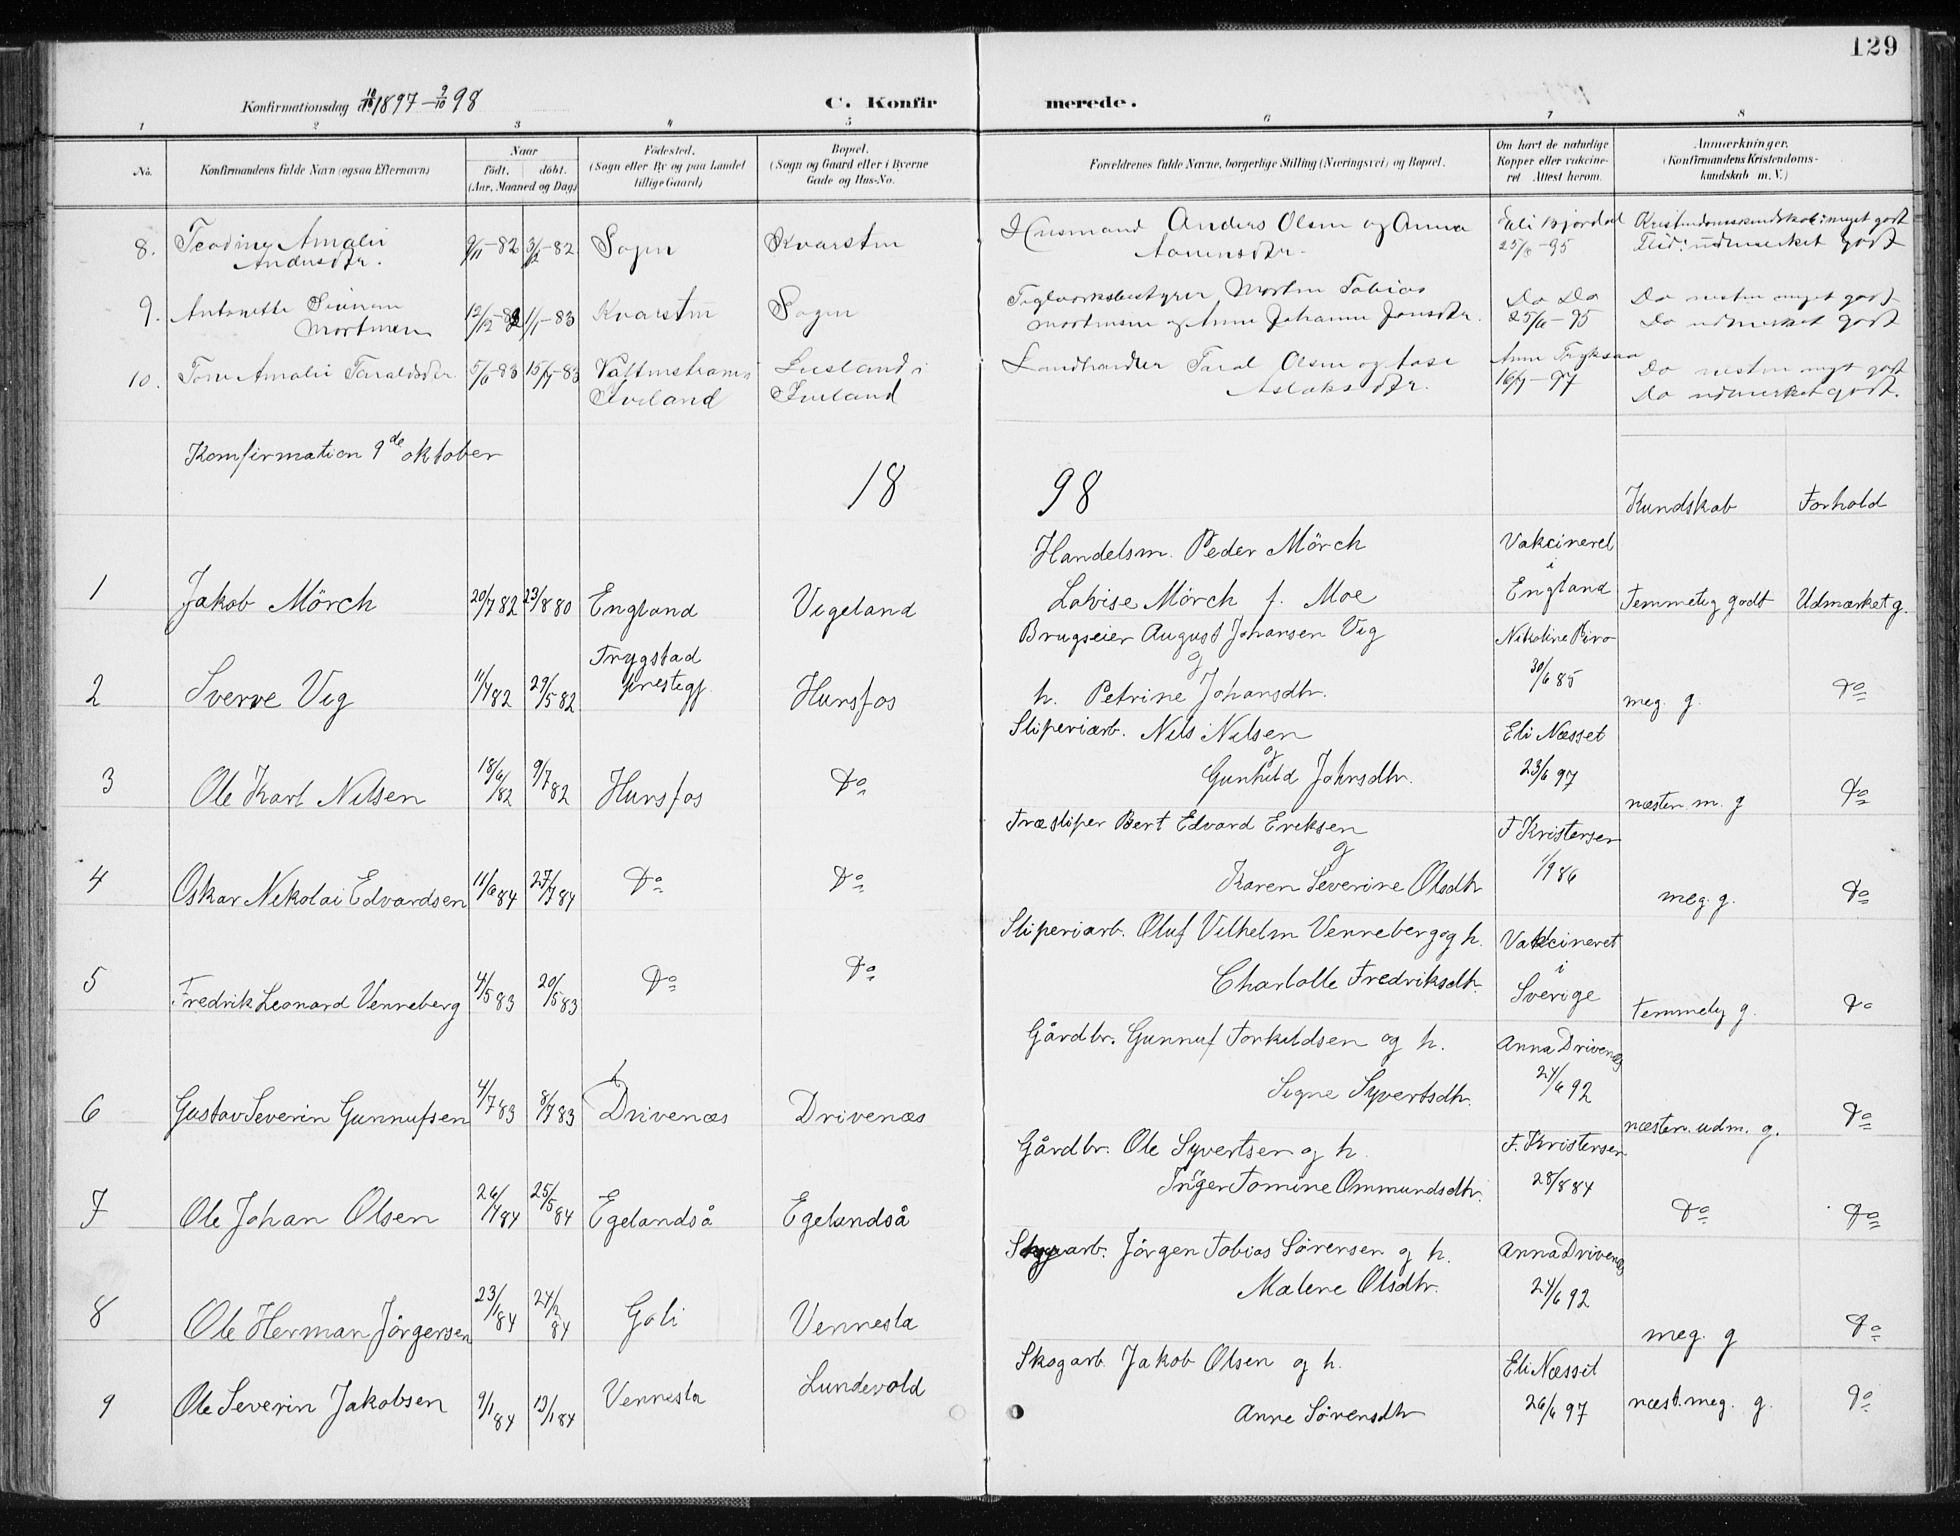 129
Konfirmationsdag d. 10/10 1897 – 9/10 98
C. Konfirmerede.
1 2 3 4 5 6 7 8
No.
Konfirmandens fulde Navn (ogsaa Efternavn)
Naar
født. døbt.
(Aar, Maaned og Dag)
Fødested.
(Sogn eller By og paa Landet
tillige Gaard)
Bopæl.
(Sogn og Gaard eller i Byerne
Gade og Hus-No.
Forældrenes fulde Navne, borgerlige Stilling (Næringsvei) og Bopæl.
Om havt de naturlige
Kopper eller vakcine-
ret Attest herom.
Anmærkninger,
(Konfirmandens Kristendoms-
kundskab m. V.)
8. Teodine Amalie
Andersdtr. 9/11–82 3/12–82 Sogn Kvarstein Husmand Anders Olsen og Anna
25/6–95 Kristendomskundskab: meget godt
Flid: udmerket godt
9. Antonette
Mortensen 12/12–82 11/1–83 Kvarstein Sogn Teglverksbestyrer Morten Tobias
Mortensen og Anne Johanne Jonsdtr. Do Do
25/6–95 Do nesten meget godt
Do udmerket godt
10. Tone Amalie Taraldsdtr. 5/6–83 15/7–83
Iveland i
Iveland Landhandler Taral Olsen og Aase
Aslaksdtr.
16/7–97 Do nesten meget godt
Do udmerket godt.
Komfirmation 9de oktober
18 98
Kundskab Forhold
1 Jakob Mörch 20/7 82 23/8 80 England Vigeland
Handelsm. Peder Mörch
Lovise Mörch f. Moe
Vakcineret
i
England Temmelig godt Udmærket g.
2 Sverre Vig 11/4 82 29/5 82 Trygstad
prestegj. Hunsfos
Brugseier August Johansen Vig
og
h. Petrine Johansdtr.
Nikoline Biro
30/6 85 meg. g. Do
3 Ole Karl Nilsen 18/6 82 9/7 82 Hunsfos Do
Sliperiarb. Nils Nilsen
og
Gunhild Johnsdtr.
Eli Næsset
23/6 97 næsten m. g Do
4 Oskar Nikolai Edvardsen 11/6 84 27/7 84 Do Do
Træsliper Bert Edvard Ereksen
og
Karen Severine Olsdtr
F Kristensen
1/9 86 meg. g. Do
5 Fredrik Leonard Venneberg 4/5 83 20/5 83 Do Do
Sliperiarb. Oluf Vilhelm Venneberg og h.
Charlotte Fredriksdtr.
Vakcineret
i
Sverige temmelig g. Do
6 Gustav Severin Gunnufsen 4/7 83 8/7 83 Drivenæs Drivenæs
Gårdbr. Gunnuf Torkildsen og h.
Signe Syvertsdtr.
Anna Drivenæs
24/6 92 næsten udm. g. Do
7 Ole Johan Olsen 26/4 84 25/5 84 Egelandså Egelandså
Gårdbr. Ole Syvertsen og h.
Inger Tomine Ommundsdtr.
F. Kristensen
28/8 84 Do Do
8 Ole Herman Jörgensen 23/1 84 24/2 84 Goli Vennesla
arb. Jörgen Tobias Sörensen og h.
Malene Olsdtr.
Anna Drivenæs
24/6 92 meg. g Do
9 Ole Severin Jakobsen 9/1 84 13/1 84 Vennesla Lundevold
Skogarb. Jakob Olsen og h.
Anne Sörensdtr
Eli Næsset
26/6 97 næst. meg. g. Do